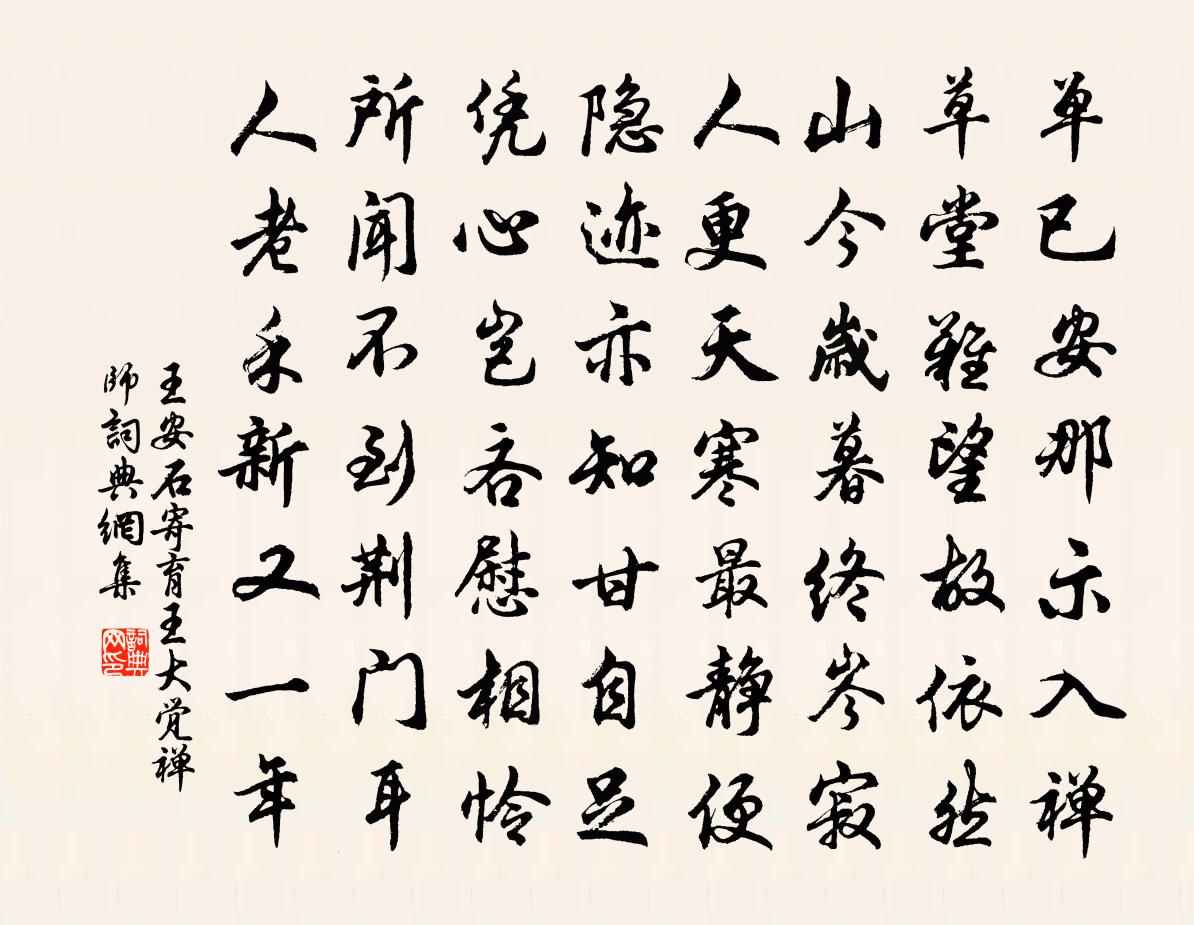 单已安那示入禅
草堂難望故依然
山今歲暮终岑寂
人更天寒最静便
隐迹亦知甘自足
凭心岂吝慰相怜
所闻不到荆门耳
人老禾新又一年
王安石寄育王大觉禅
師詞典網集
詞典
网印